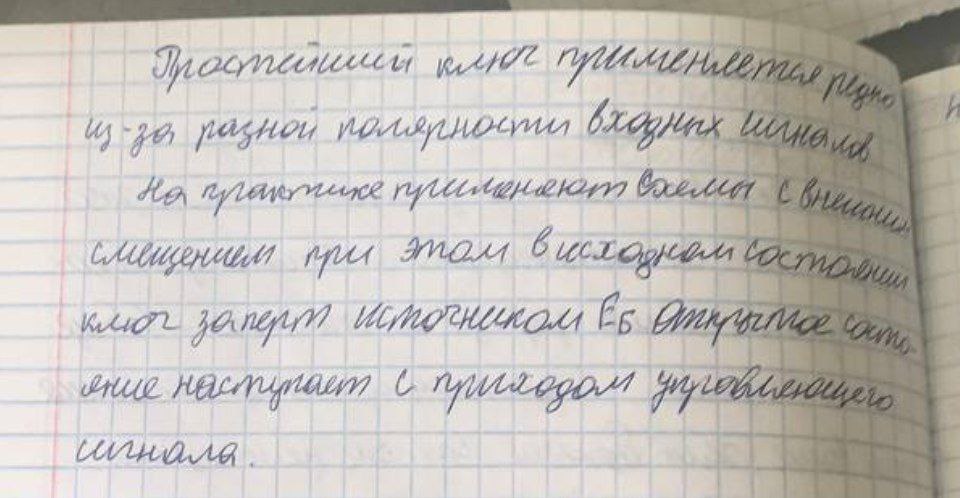 Простейший ключ применяется редко
из-за разной полярности входных сигналов
На практике применяют схемы с внешним
смещением при этом в исходном состоянии
ключ заперт источником Еб Открытое состо-
яние наступает с приходом управляющего
сигнала.